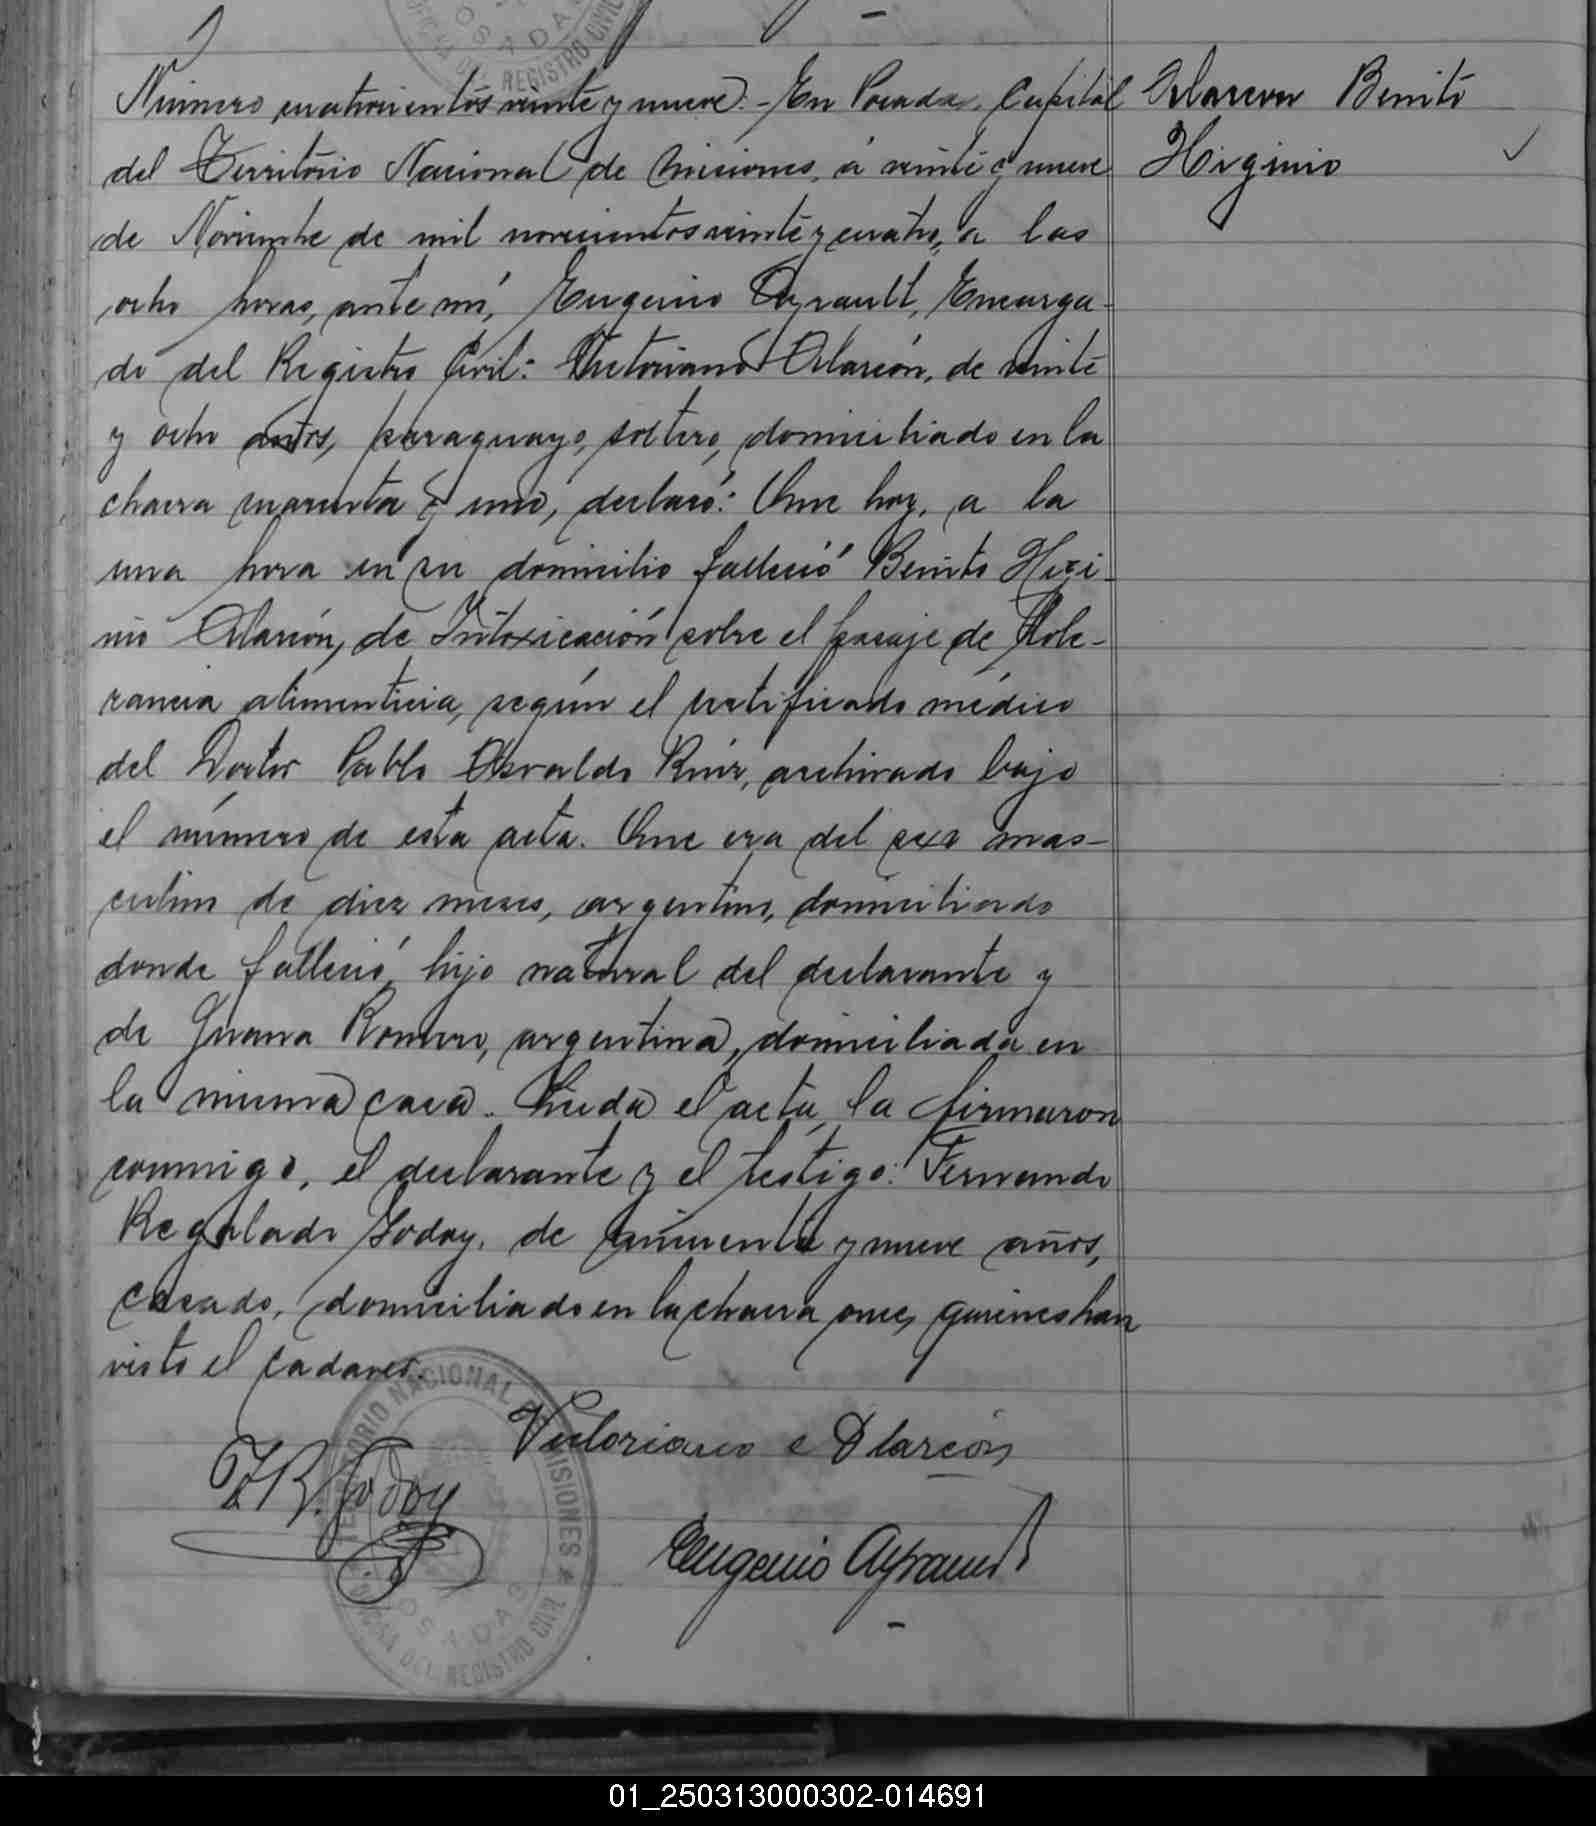 Número cuatrocientos veinte y nueve. - En Posadas, Capital
Alarcon Benito
del Territorio Nacional de Misiones, á veinte y nueve
Higinio
de Noviembre de mil novecientos veinte y cuatro, a las
ocho horas, ante mí, Eugenio Ayrault, Encarga-
do del Registro Civil: Victoriano Alarcón, de veinte
y ocho años, paraguayo, soltero, domiciliado en la
chacra cuarenta y uno, declaró: Que hoy, a la
una hora en su domicilio falleció Benito Higi-
nio Alarcón, de Intoxicación sobre el pasaje de tole-
rancia alimenticia, según el certificado médico
del Doctor Pablo Osvaldo Ruiz, archivado bajo
el número de esta acta. Que era del sexo mas-
culino de diez meses, argentino, domiciliado
donde falleció, hijo natural del declarante y
de Juana Romero, argentina, domiciliada en
la misma casa. Leida el acta, la firmaron
conmigo, el declarante y el testigo: Fernando
Regalado Godoy, de cincuenta y nueve años,
casado, domiciliado en la chacra once, quienes han
visto el cadaver.
Victoriano Alarcón
F R. Godoy
Eugenio Ayrault
TERRITORIO NACIONAL DE MISIONES
OFICINA DEL REGISTRO CIVIL
POSADAS
01_250313000302-014691